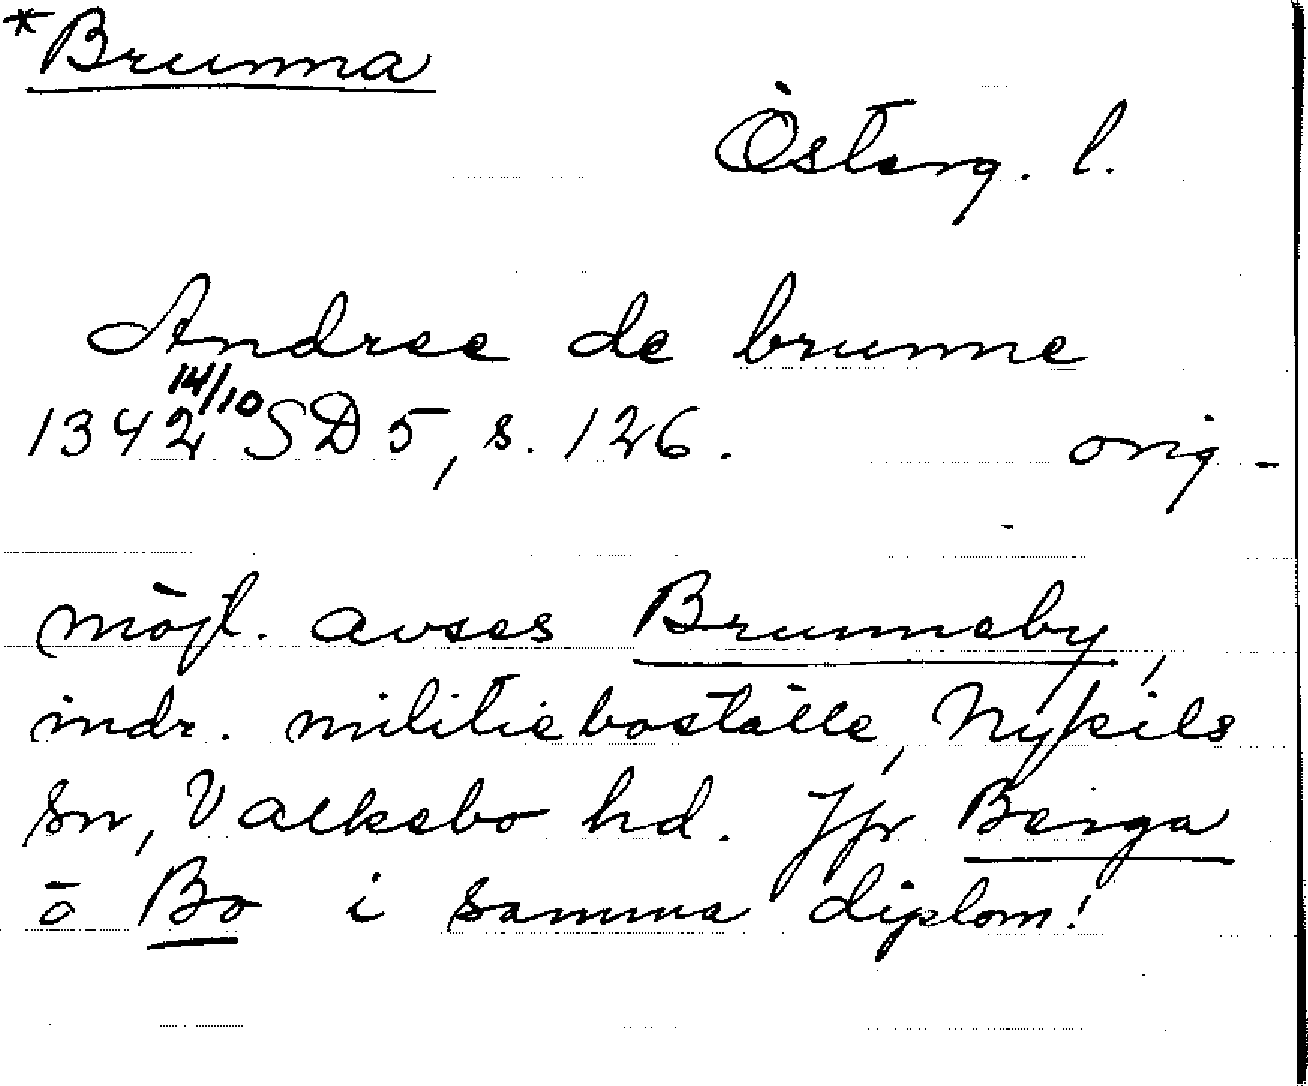 *Brunna
Österg. l.
Andree de brunne
1342 14/10 SD 5, s. 126. orig-
möjl. avses Brunneby,
indr. militieboställe, Nykils
sn, Valkebo hd. Jfr Berga
o Bo i samma diplom!